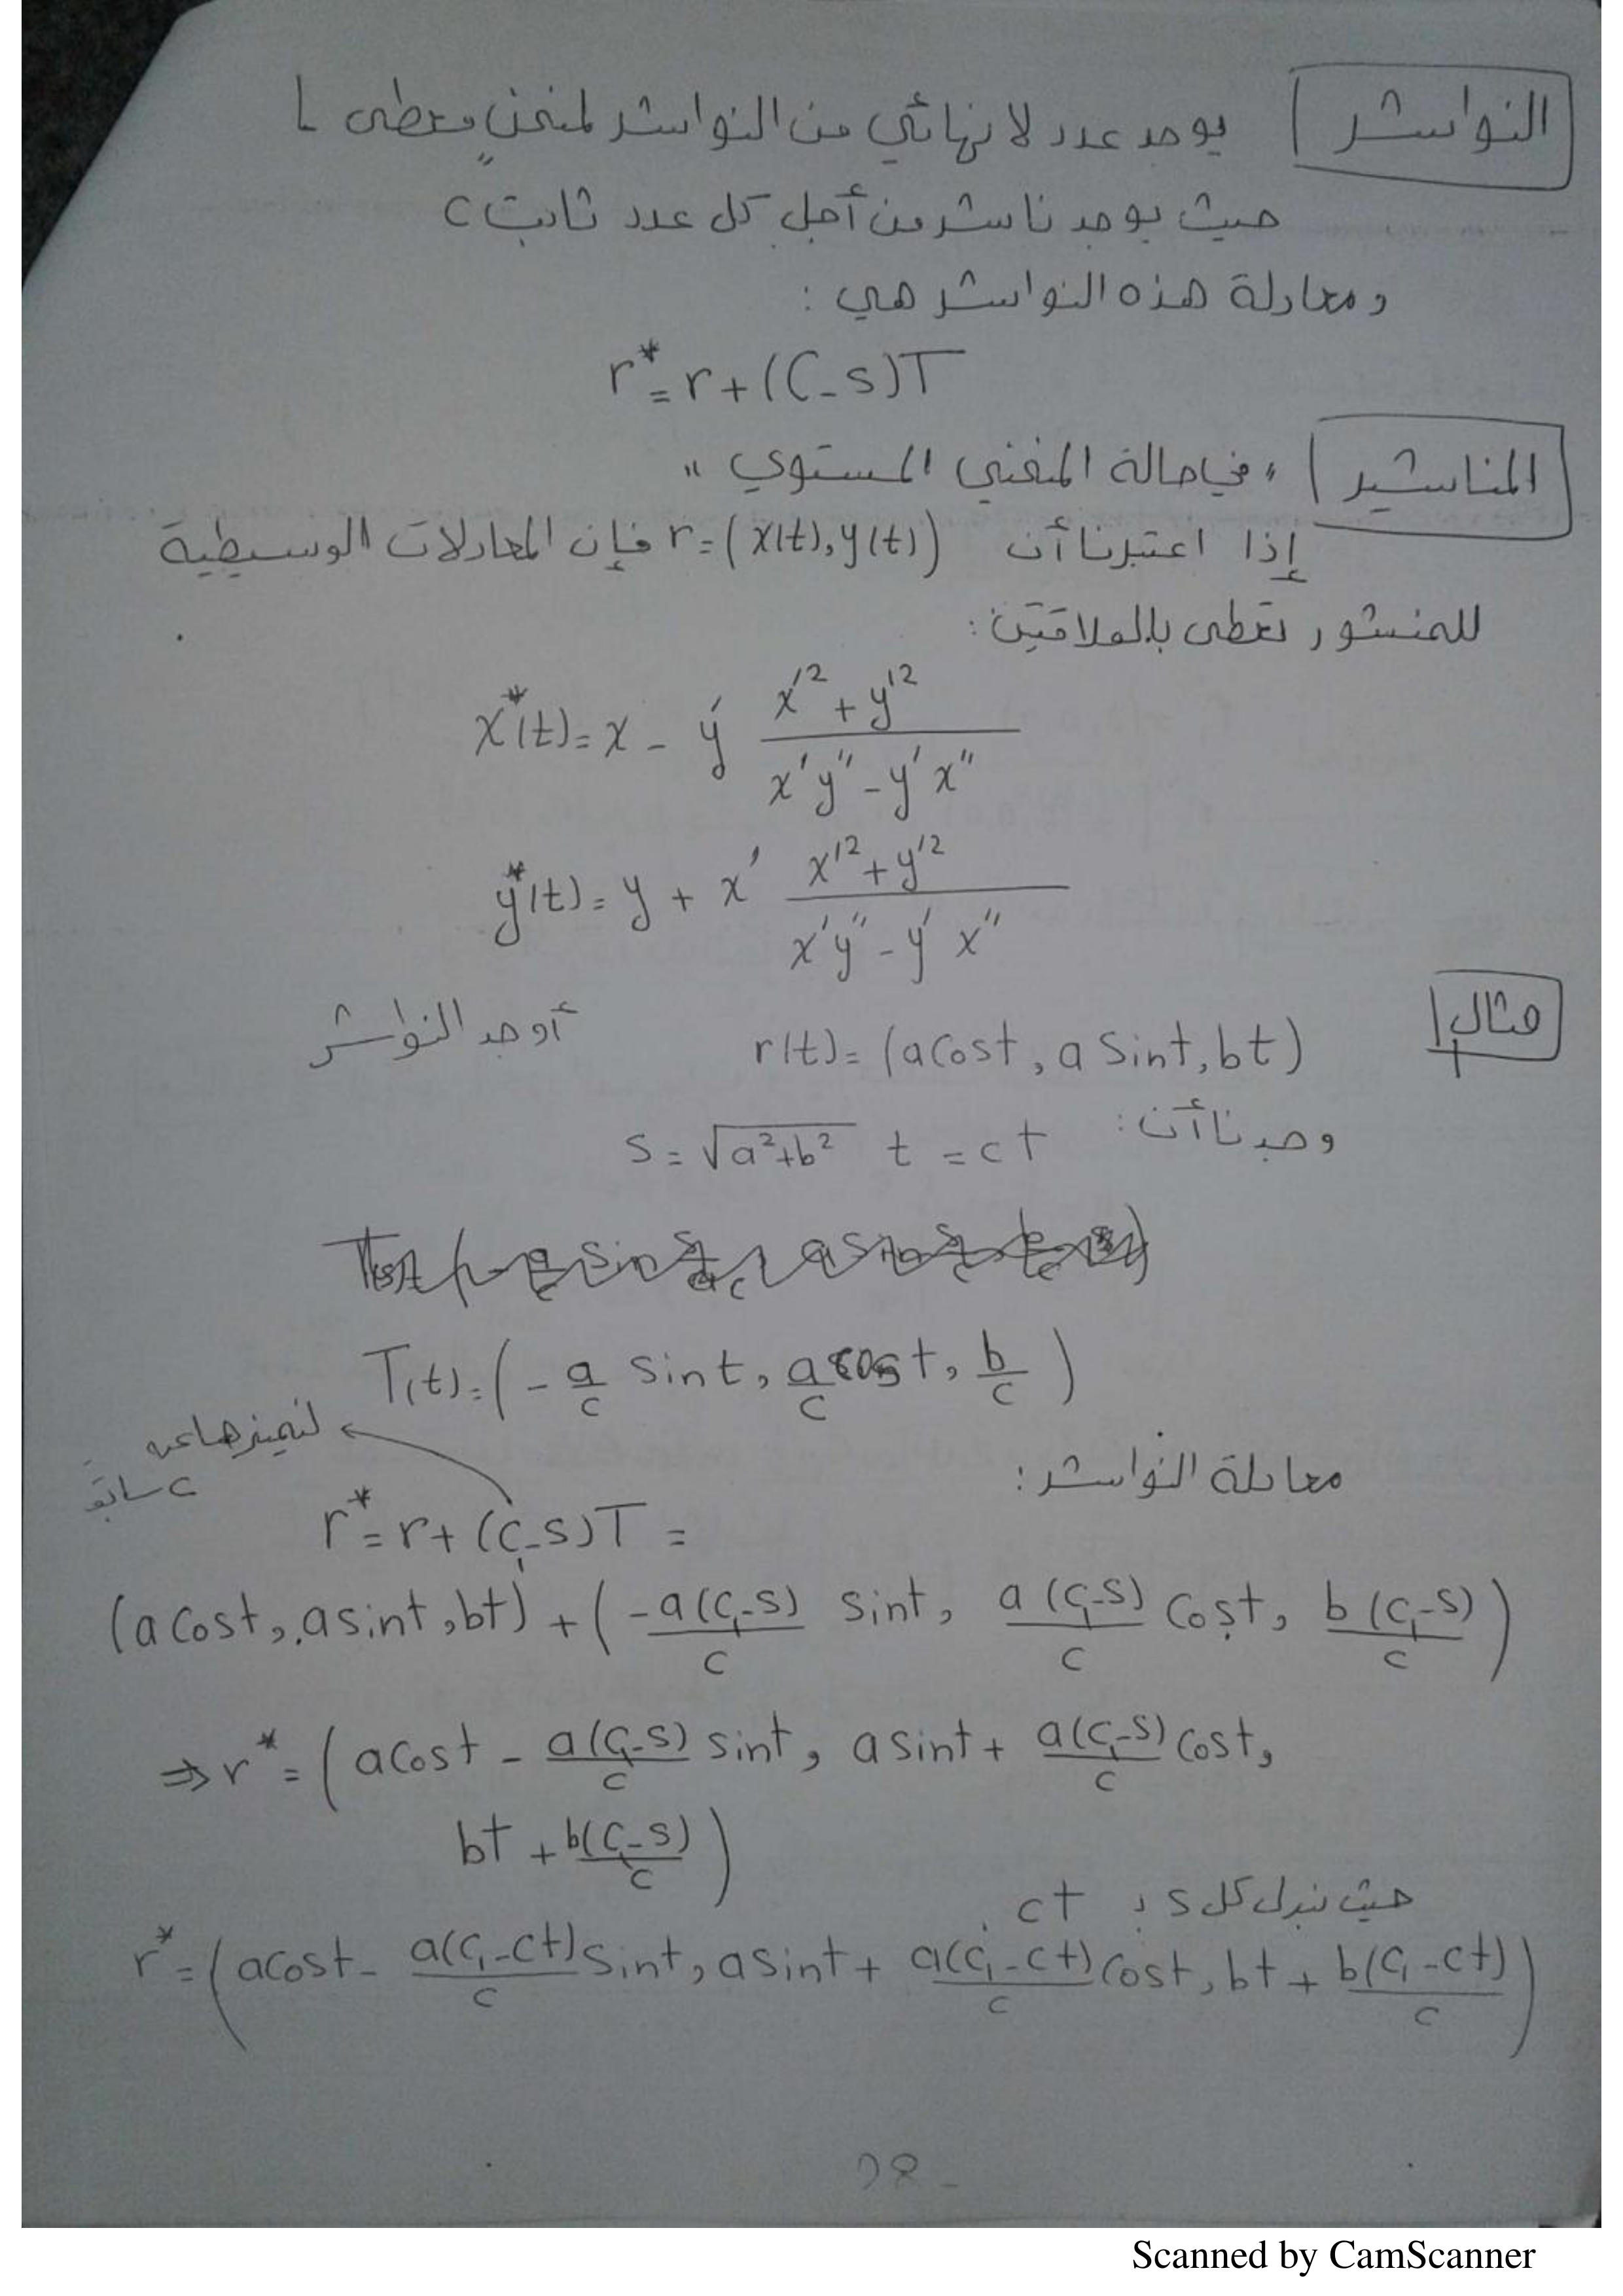 النواشر يوجد عدد لا نهائي من النواشر لمنحنٍ معطى L
حيث يوجد ناشر من أجل كل عدد ثابت c
ومعادلة هذه النواشر هي :
r* = r + (C - s)T
المناشير "في حالة المنحني المستوي"
إذا اعتبرنا أن r = (x(t), y(t)) فإن المعادلات الوسيطية
للمنشور تعطى بالعلاقتين:
x*(t) = x - y' (x'² + y'²) / (x'y'' - y'x'')
y*(t) = y + x' (x'² + y'²) / (x'y'' - y'x'')
مثال 1 r(t) = (a cos t, a sin t, bt) أوجد النواشر
وجدنا أن: s = √(a²+b²) t = ct
T(t) = (-a/c sin t, a/c cos t, b/c)
لنميزها عن
c سابقة
معادلة النواشر:
r* = r + (c₁ - s)T =
(a cos t, a sin t, bt) + (-a(c₁-s)/c sin t, a(c₁-s)/c cos t, b(c₁-s)/c)
⇒ r* = (a cos t - a(c₁-s)/c sin t, a sin t + a(c₁-s)/c cos t,
bt + b(c₁-s)/c)
حيث نبدل كل s بـ ct
r* = (a cos t - a(c₁-ct)/c sin t, a sin t + a(c₁-ct)/c cos t, bt + b(c₁-ct)/c)
Scanned by CamScanner